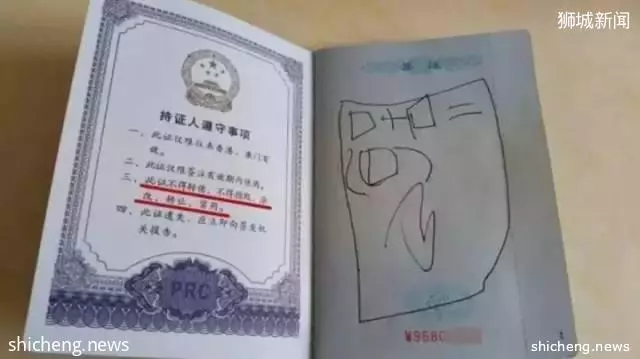 狮城新闻
持证人遵守事项
一、此证仅限往来香港、澳门有
效。
二、此证仅限签注有效期内使用。
三、此证不得转借、不得损毁、涂
改、转让、冒用。
四、此证遗失,应立即向签发机
关报告。
PRC
签 注
0+0=
shicheng.news
shicheng.news